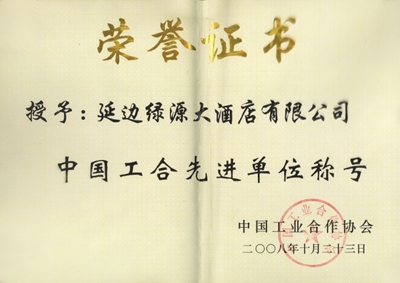 荣誉证书
授予：延边绿源大酒店有限公司
中国工合先进单位称号
中国工业合作协会
二〇〇八年十月二十三日